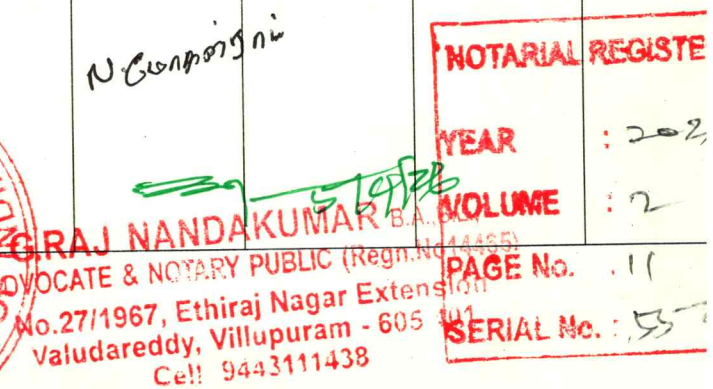 N மோகன்ராம்
NOTARIAL REGISTE
YEAR : 202
VOLUME : 2
PAGE No. . 11
SERIAL No. : 55
5/9/26
G.RAJ NANDAKUMAR B.A.,
DVOCATE & NOTARY PUBLIC (Regn.No14465)
No.27/1967, Ethiraj Nagar Extension
Valudareddy, Villupuram - 605 401
Cell 9443111438